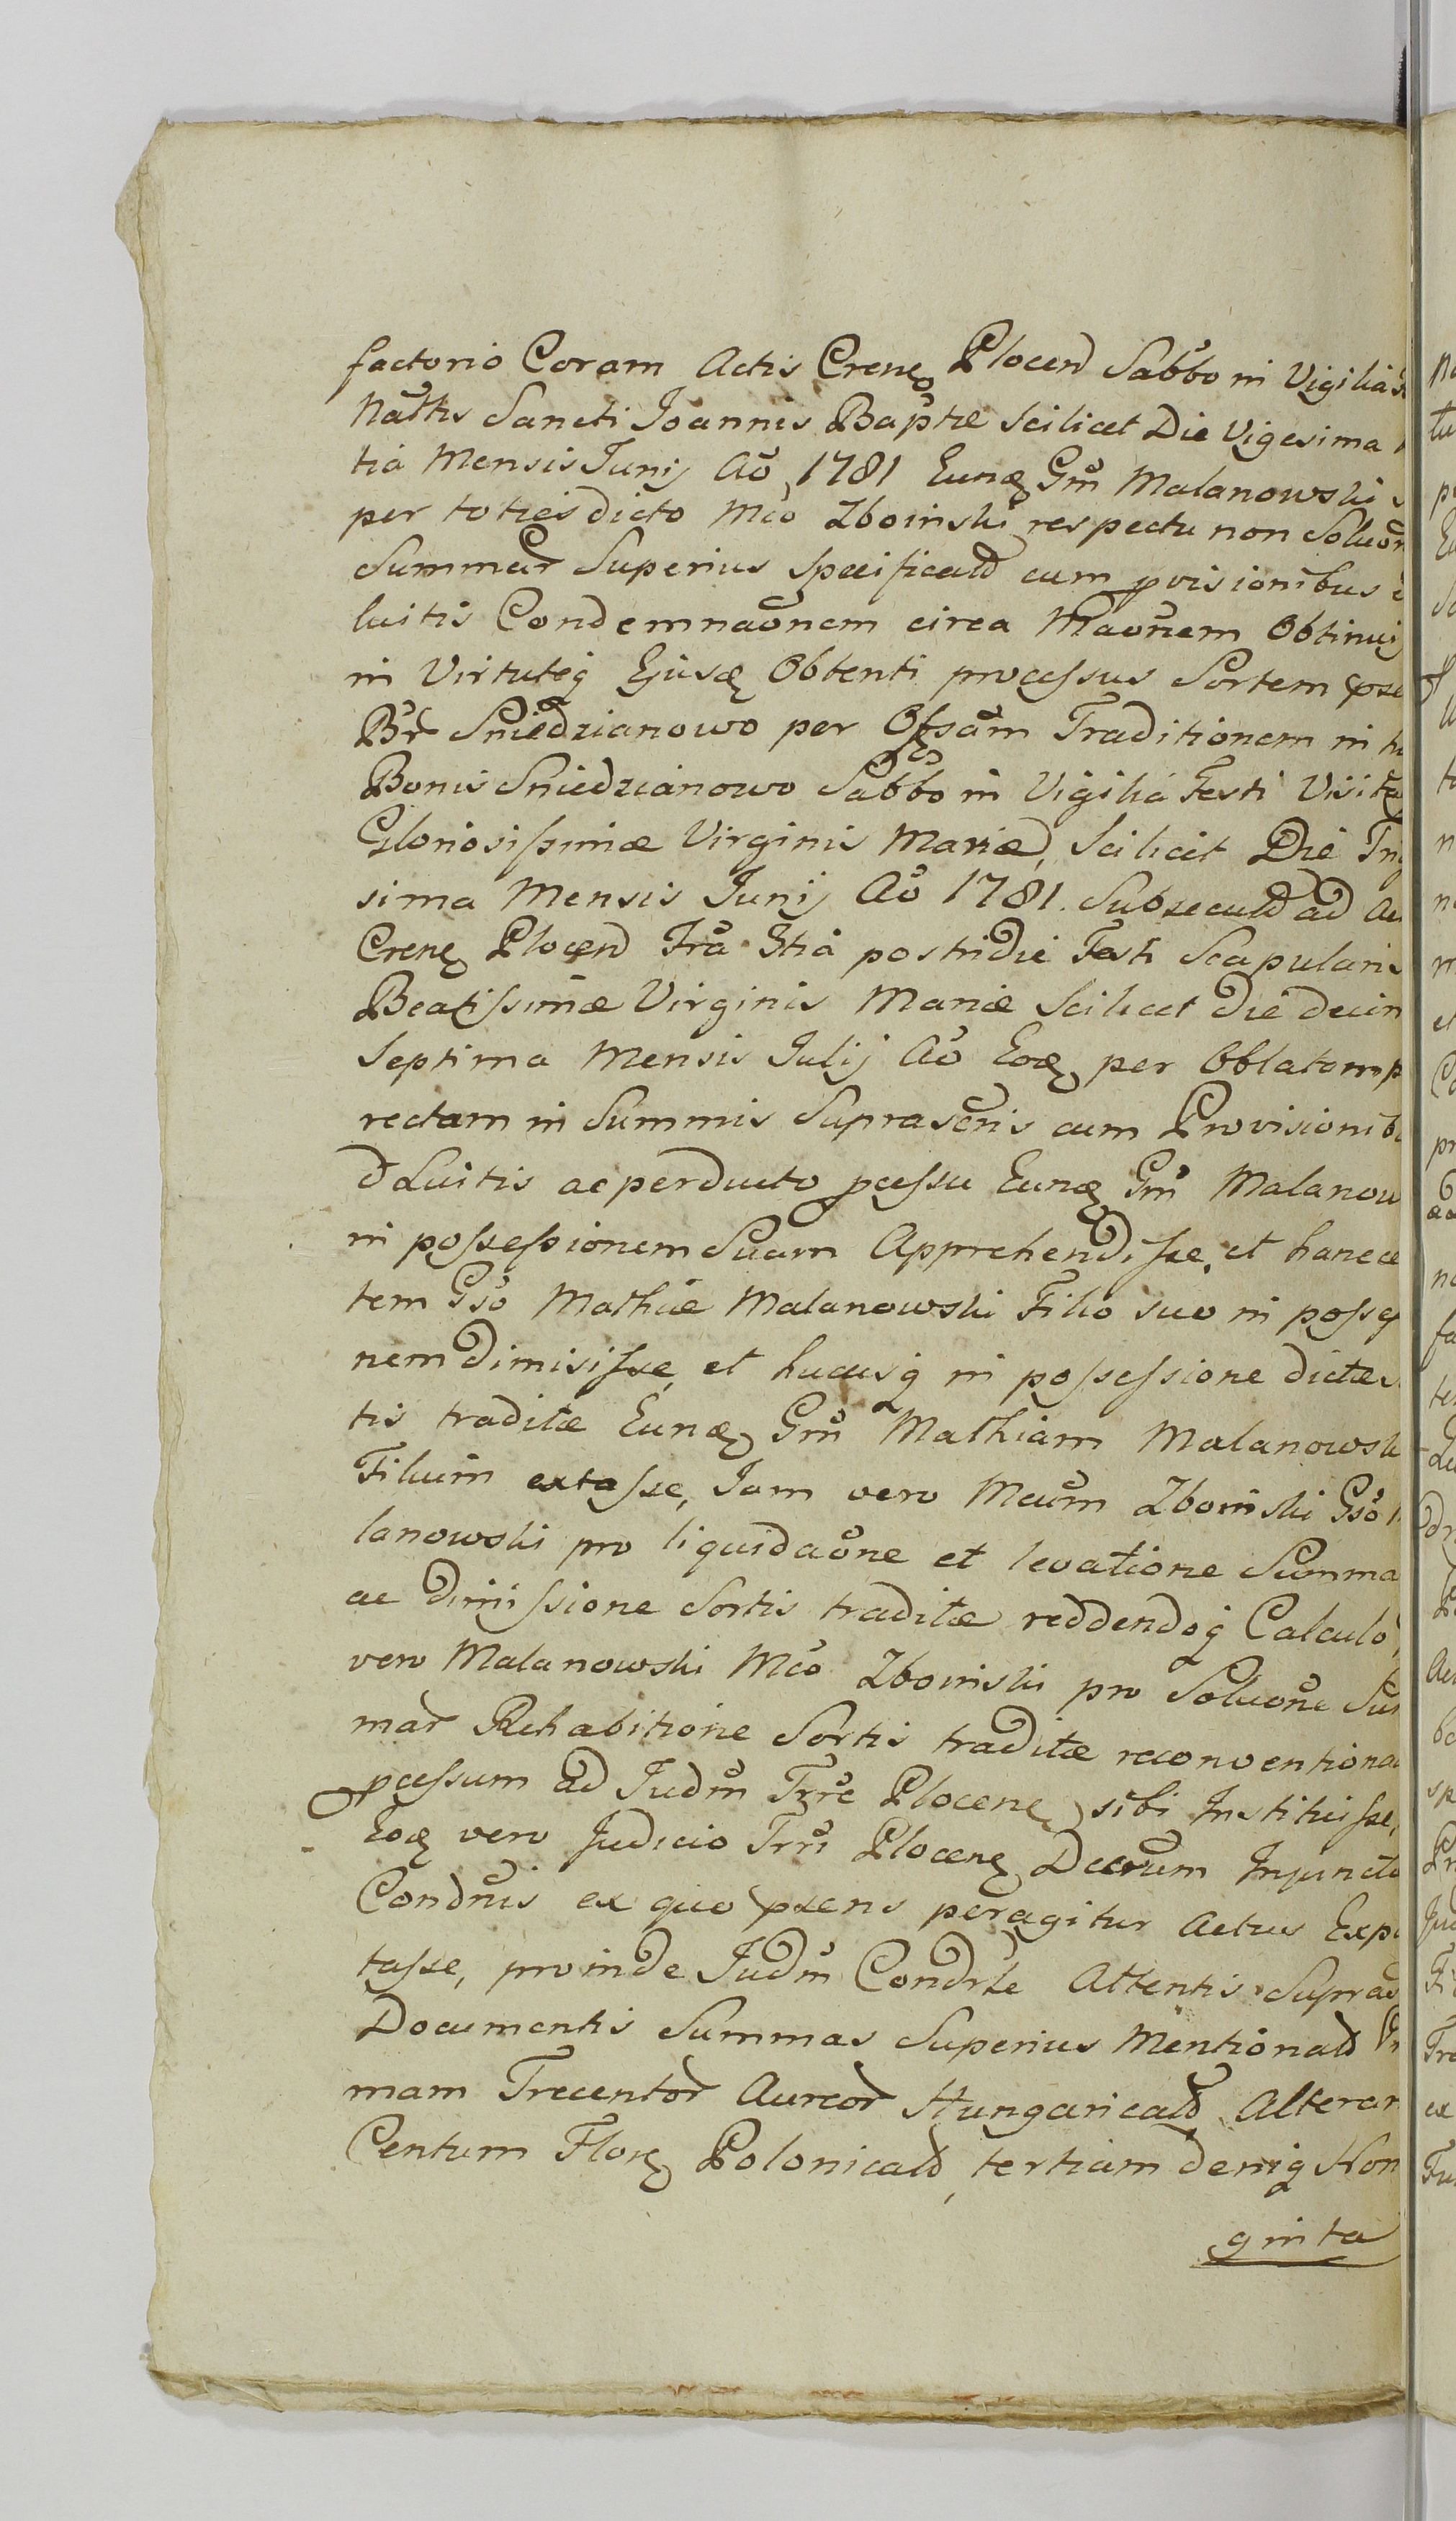 factorio Coram Actis Crens Plocen Sabbo in Vigilia
Nattis Sancti Joannis Baptæ Scilicet Die Vigesima
tia Mensis Junij Aõ 1781 Eunđ Gm̃ Malanowski
per toties dicto Mc̃o Zboinski respectu non Soluõn
Summar Superius Specificatđ cum pvisionibus
luitis Condemnaõnem circa Mraõnem Obtinuij
in Virtuteq̃ Ejusđ Obtenti processus Sortem pse
Br̃ Sniedzianowo per Offsam Traditionem in
Bonis Sniedzianowo Sabbo in Vigilia Festi Visita
Gloriosissimæ Virginis Mariæ, Scilicet Die Trig
sima Mensis Junij Aõ 1781. Subsecutđ ad Ac
Crens Plocen Fra 3tia postridie Festi Scapularis
Beatissimæ Virginis Mariæ Scilicet die decim
Septima Mensis Julij Aõ Eođ per Oblatam p
rectam in Summis Suprascr̃is cum Provisionib
đ Luitis ac perducto pcessu Eunđ Gm̃ Malanow
in possessionem Suam Apprehendisse, et hance
tem Gso Mathiæ Malanowski Filio suo in posses
nem dimisisse, et hucusq̃ in possessione dictæ
tis traditæ Eunđ Gm̃ Mathiam Malanowski
Filium extasse, Jam vero Mcum Zboinski Gso
lanowski pro liquidaõne et levatione Summa
ac dimissione Sortis traditæ reddendoq̃ Calculo,
vero Malanowski Mc̃o Zboinski pro Soluõne Su
mar Rehabitione Sortis traditæ reconventiona
pcessum ad Judm̃ Trr̃e Plocens sibi Instituisse,
Eođ vero Judicio Trr̃i Plocens Decrum Injuncta
Condnis ex quo psens peragitur Actus Exp
tasse, proinde Judm̃ Condrle Attentis Supras
Documentis Summas Superius Mentionatđ
mam Trecentor Aureor Hungaricalđ, Alteram
Centum Flor Polonicalđ, tertiam deniq̃ Non
ginta